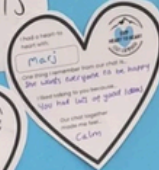 I had a heart to
heart with:
Marj
HEART TO HEART
One thing I remember from our chat is...
She wants everyone to be happy
I liked talking to you because...
You had lots of good ideas
Our chat together
made me feel...
Calm